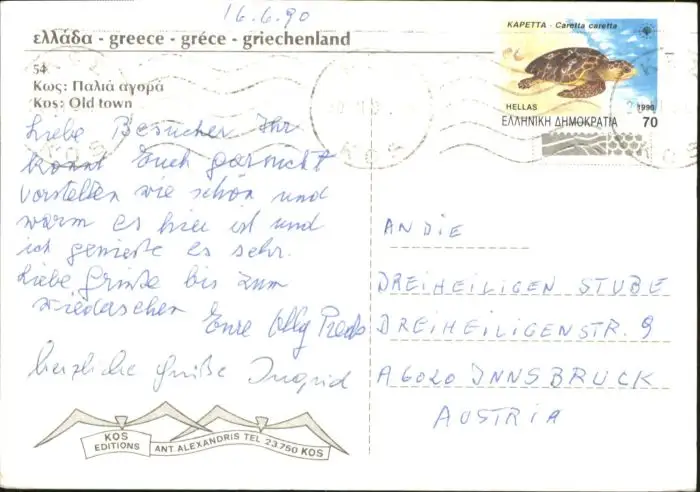 16.6.90
ελλάδα - greece - gréce - griechenland
54
Κως: Παλιά αγορά
Kos: Old town
ΚΑΡΕΤΤΑ - Caretta caretta
HELLAS 1990
ΕΛΛΗΝΙΚΗ ΔΗΜΟΚΡΑΤΙΑ 70
Liebe Besucher Ihr
könnt Euch garnicht
vorstellen wie schön und
warm es hier ist und
ich genieße es sehr.
Liebe Grüße bis zum
wiedersehen
Eure Olly
herzliche Grüße Ingrid
ANDIE
DREIHEILIGEN STUBE
DREIHEILIGENSTR. 9
A 6020 INNSBRUCK
AUSTRIA
KOS
EDITIONS
ANT ALEXANDRIS TEL 23.750 KOS